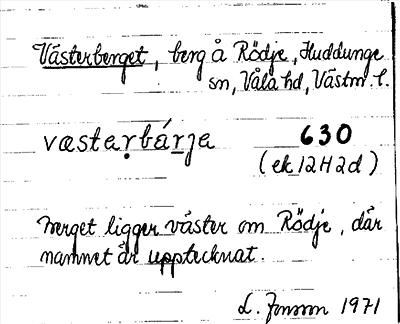 Västerberget, berg å Rödje, Huddunge
sn, Våla hd, Västm. l.
væstaṛbárja 630
(ek 12H2d)
Berget ligger väster om Rödje, där
namnet är upptecknat.
L. Jonsson 1971